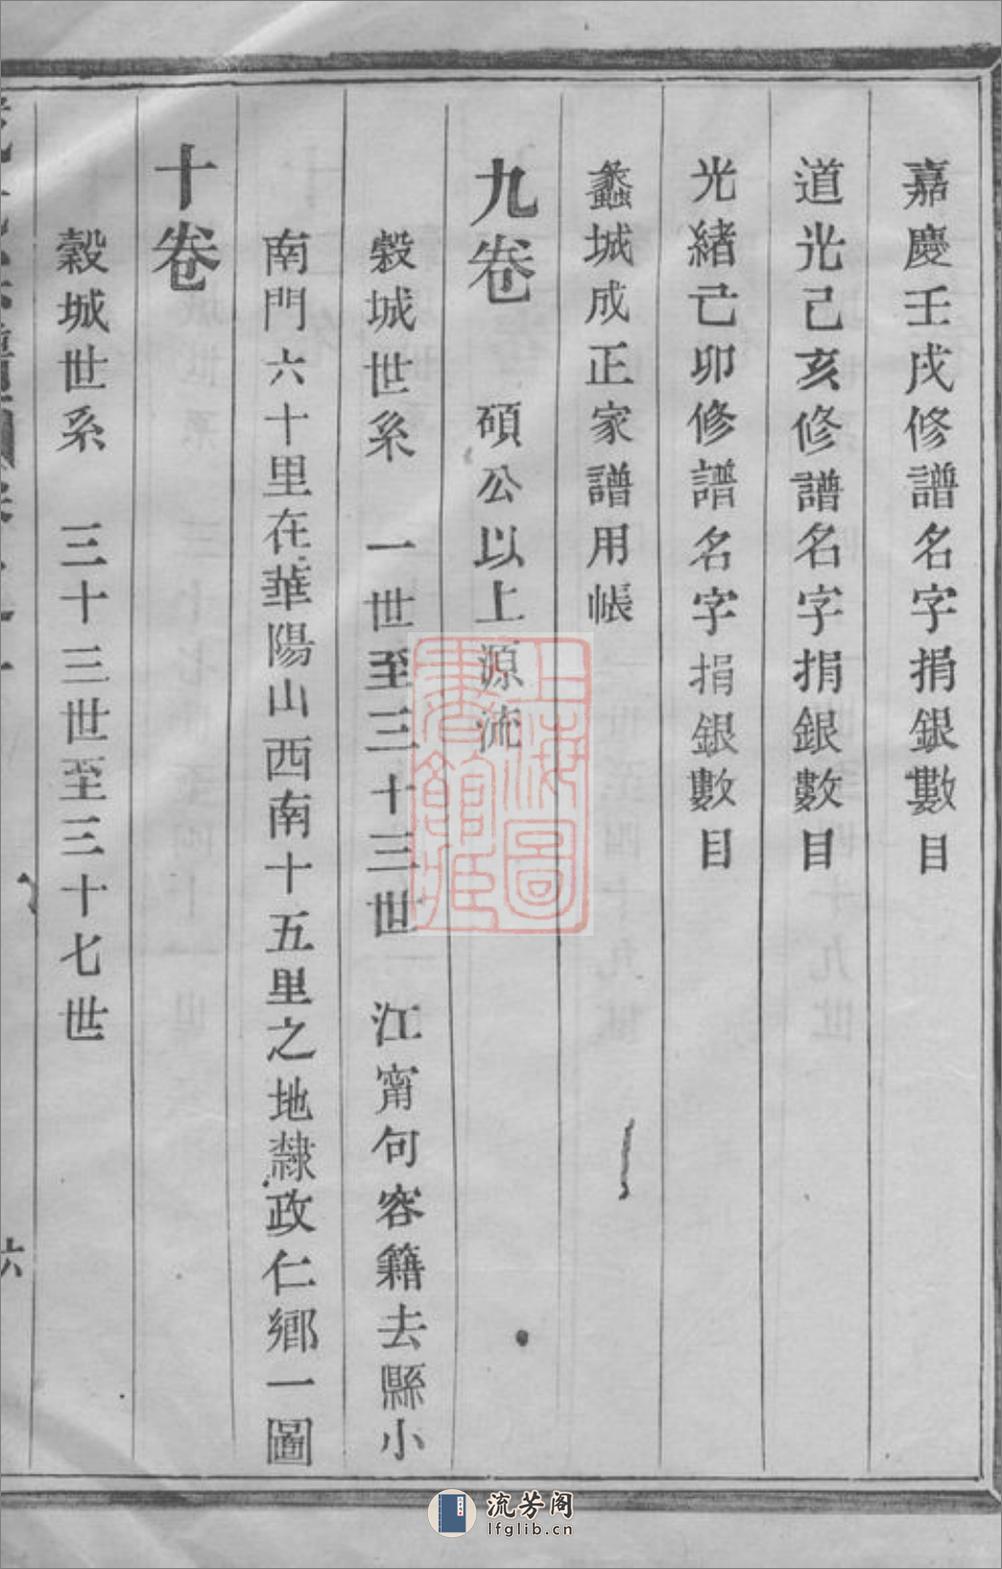 嘉慶壬戌修譜名字捐銀數目
道光己亥修譜名字捐銀數目
光緒己卯修譜名字捐銀數目
蠡城成正家譜用帳
九卷　碩公以上源流
穀城世系　一世至三十三世　江甯句容籍去縣小
南門六十里在華陽山西南十五里之地隸政仁鄉一圖
十卷
穀城世系　三十三世至三十七世
六
上海圖書館藏
流芳阁
lfglib.cn